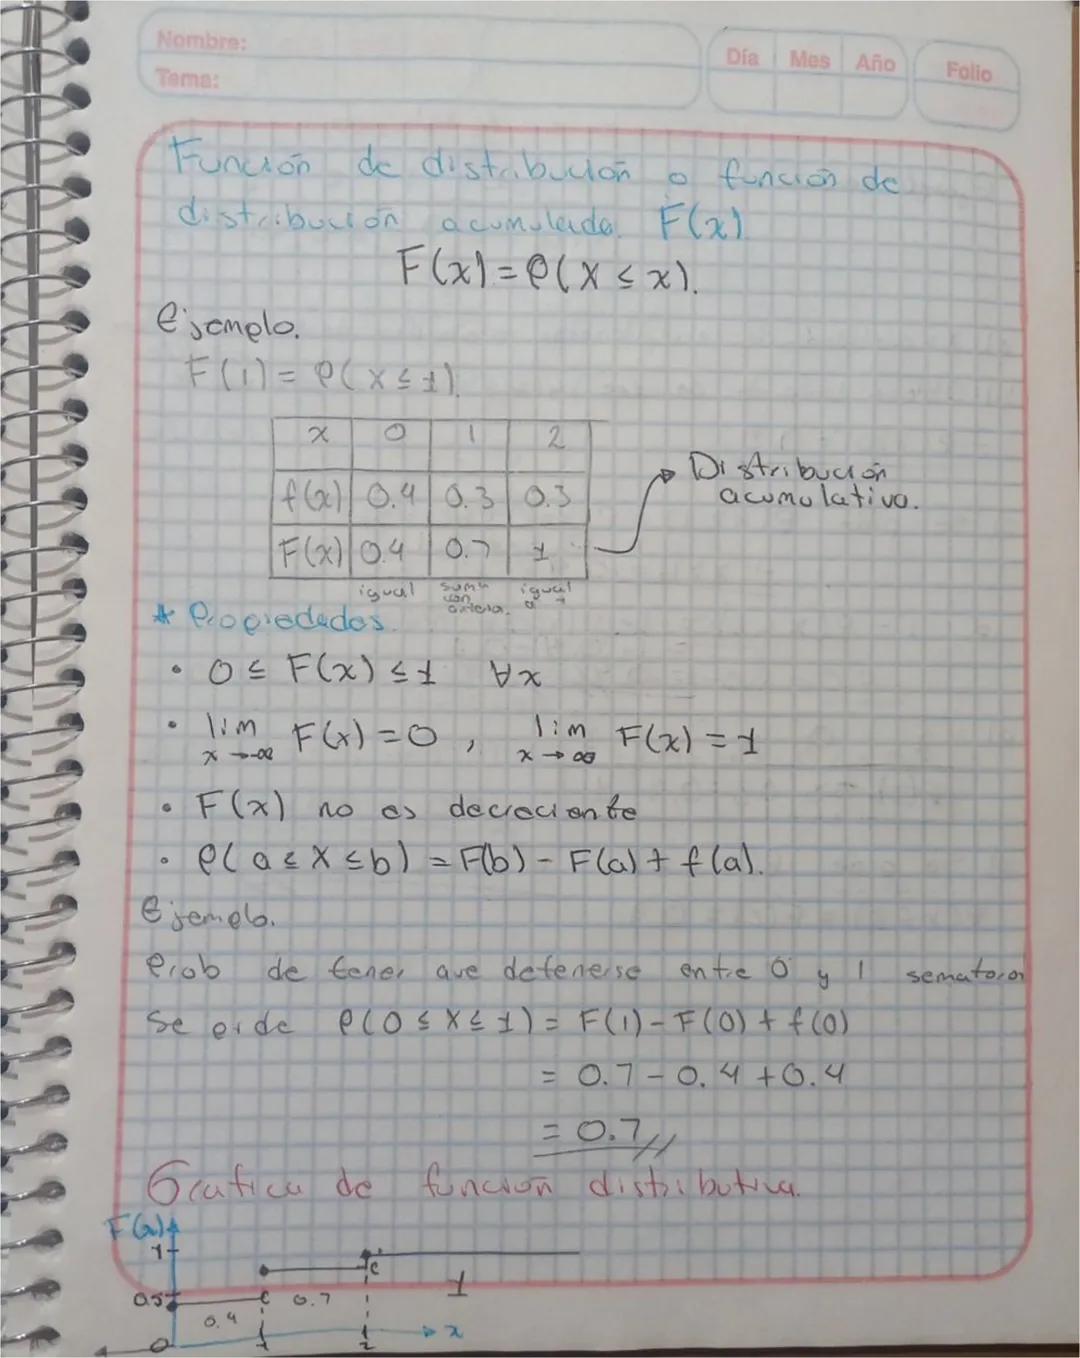 Nombre:
Tema:
Día Mes Año
Folio
Función de distribución o función de
distribución acumulada. F(x)
F(x) = P(X ≤ x).
Ejemplo.
F(1) = P(X ≤ 1)
x 0 1 2
f(x) 0.4 0.3 0.3
F(x) 0.4 0.7 1
Distribución
acumulativa.
igual suma igual
con a 1
* Propiedades.
• 0 ≤ F(x) ≤ 1 ∀x
• lim F(x) = 0 , lim F(x) = 1
x → -∞ x → ∞
• F(x) no es decreciente
• P(a ≤ X ≤ b) = F(b) - F(a) + f(a).
Ejemplo.
Prob de tener que detenerse entre 0 y 1
Se pide P(0 ≤ X ≤ 1) = F(1) - F(0) + f(0)
= 0.7 - 0.4 + 0.4
= 0.7 //
Grafica de función distributiva.
F(x)
1
0.5
0.4 0.7 1
0 1 2 x